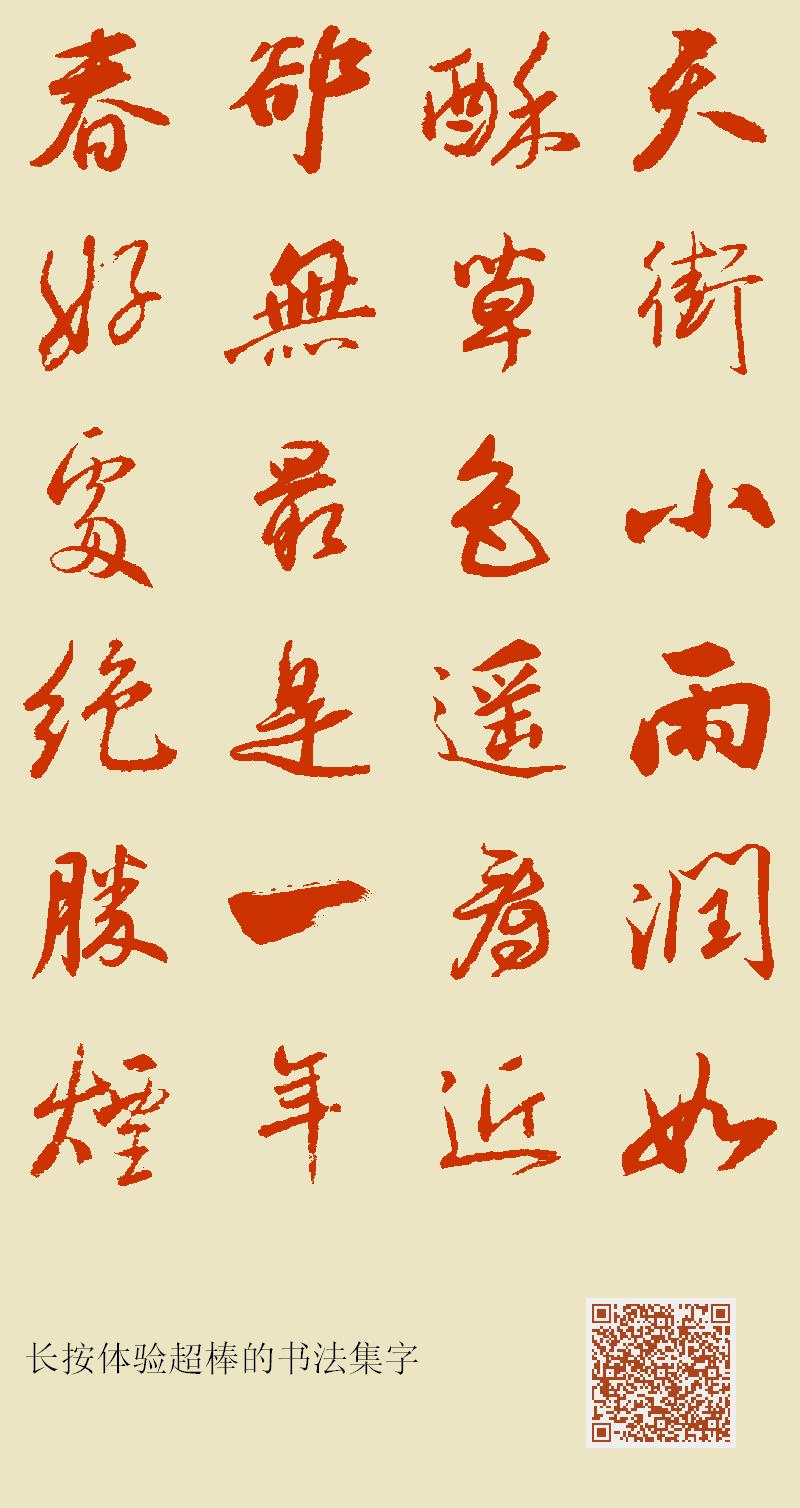 天街小雨潤如
酥草色遥看近
卻無最是一年
春好處絶勝煙
长按体验超棒的书法集字